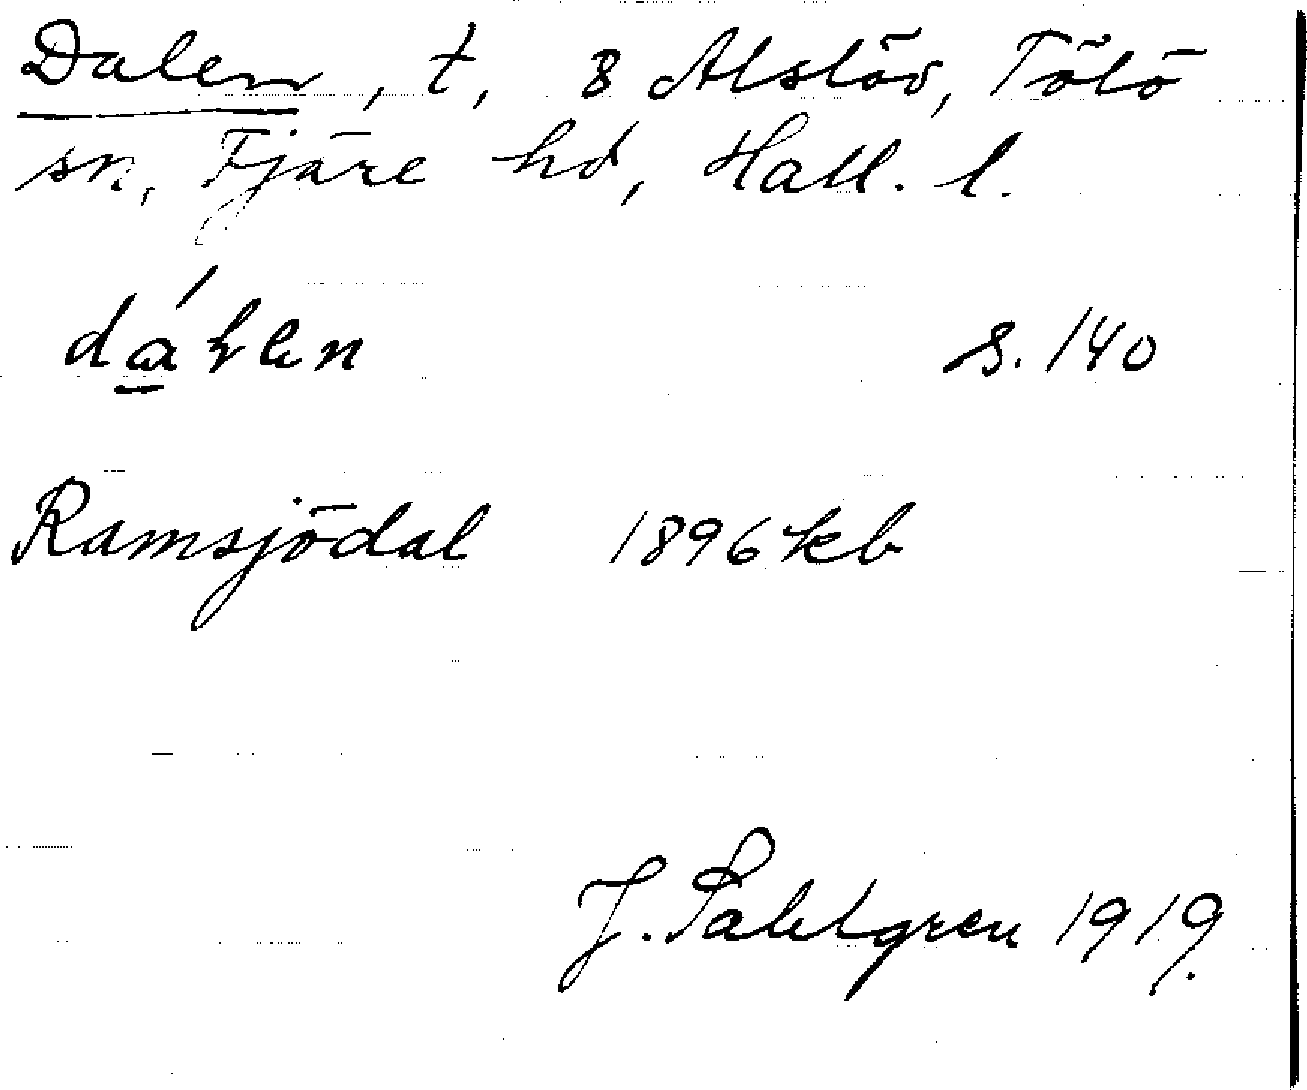 Dalen, t, 8 Alslöv, Tölö
sn, Fjäre hd, Hall. l.
s. 140
Ramsjödal 1896 kb
J. Sahlgren 1919.